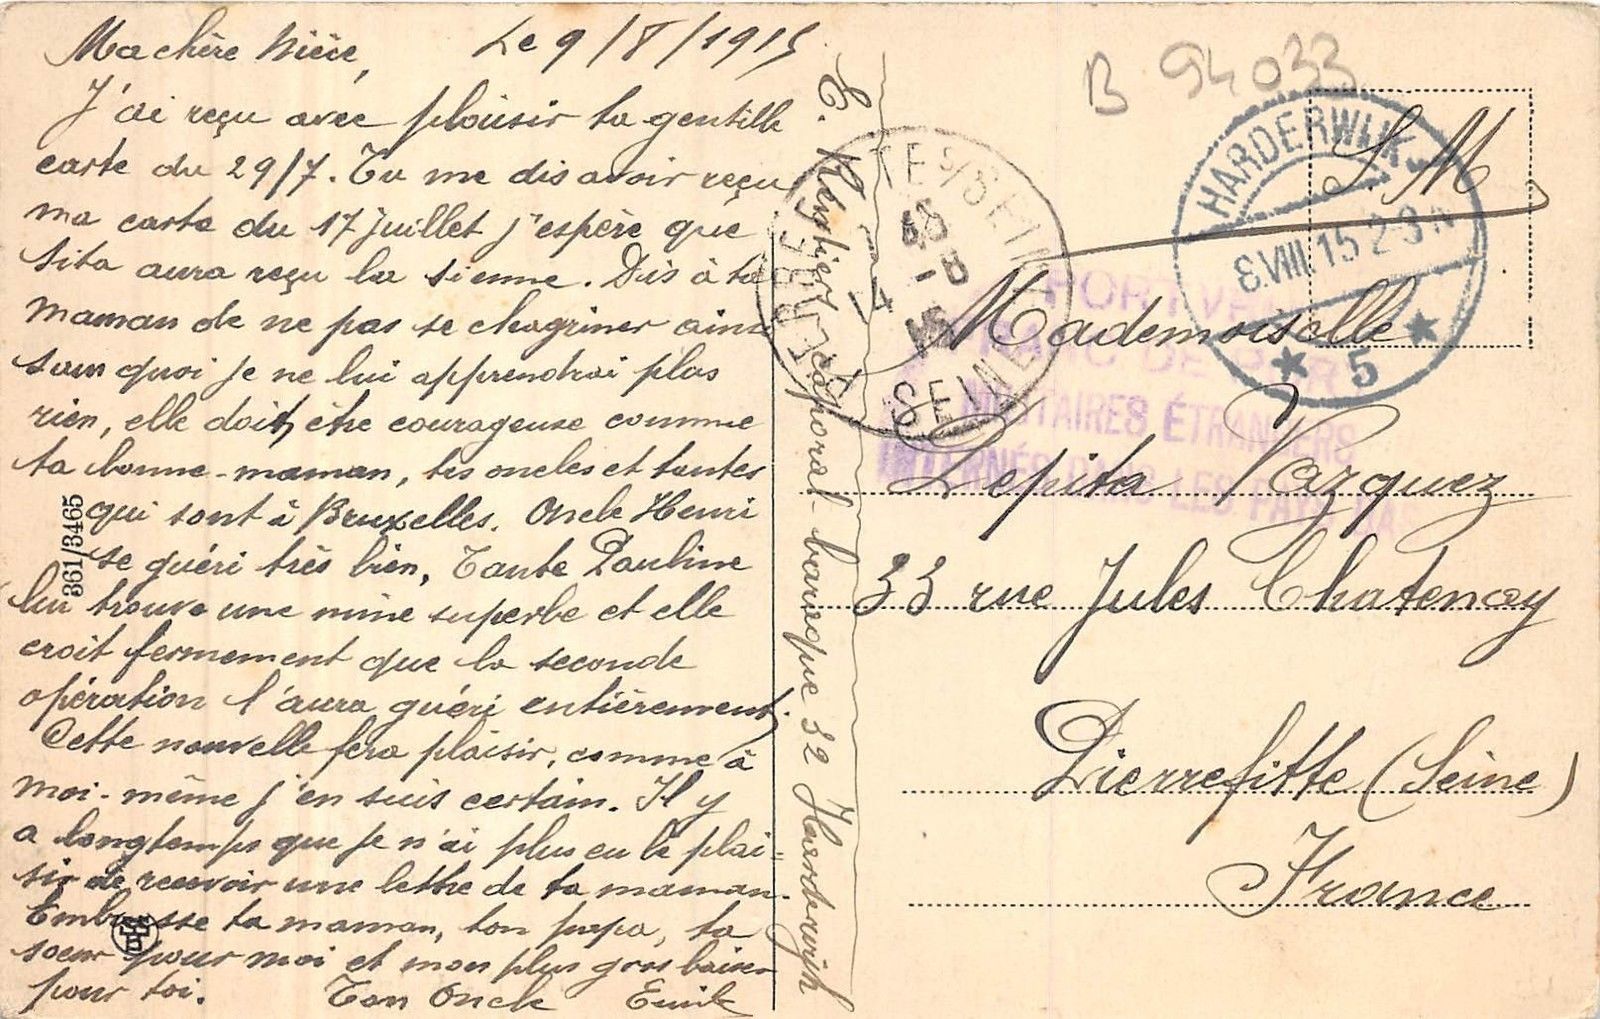 Ma chère Nièce, Le 9/8/1915
J'ai reçu avec plaisir ta gentille
carte du 29/7. Tu me dis avoir reçu
ma carte du 17 juillet j'espère que
Sita aura reçu la sienne. Dis à ta
maman de ne pas se chagriner ainsi
sans quoi je ne lui apprendrai plus
rien, elle doit être courageuse comme
ta bonne-maman, tes oncles et tantes
qui sont à Bruxelles. Oncle Henri
se guéri très bien, Tante Pauline
lui trouve une mine superbe et elle
croit fermement que la seconde
opération l'aura guéri entièrement.
Cette nouvelle fera plaisir, comme à
moi-même j'en suis certain. Il y
a longtemps que je n'ai plus eu le plai-
sir de recevoir une lettre de ta maman.
Embrasse ta maman, ton papa, ta
soeur pour moi et mon plus gros baiser
pour toi. Ton Oncle Emile
361/3465
E. caporal baraque 32 Harderwijk
B 94033
S.M
HARDERWIJK
8.VIII.15 2-3N
5
PIERREFITTE S/SEINE
SEINE
PORT
FRANC DE PORT
MILITAIRES ÉTRANGERS
INTERNÉS DANS LES PAYS-BAS
Mademoiselle
Pepita Vazquez
33 rue Jules Chatenay
Pierrefitte (Seine)
France